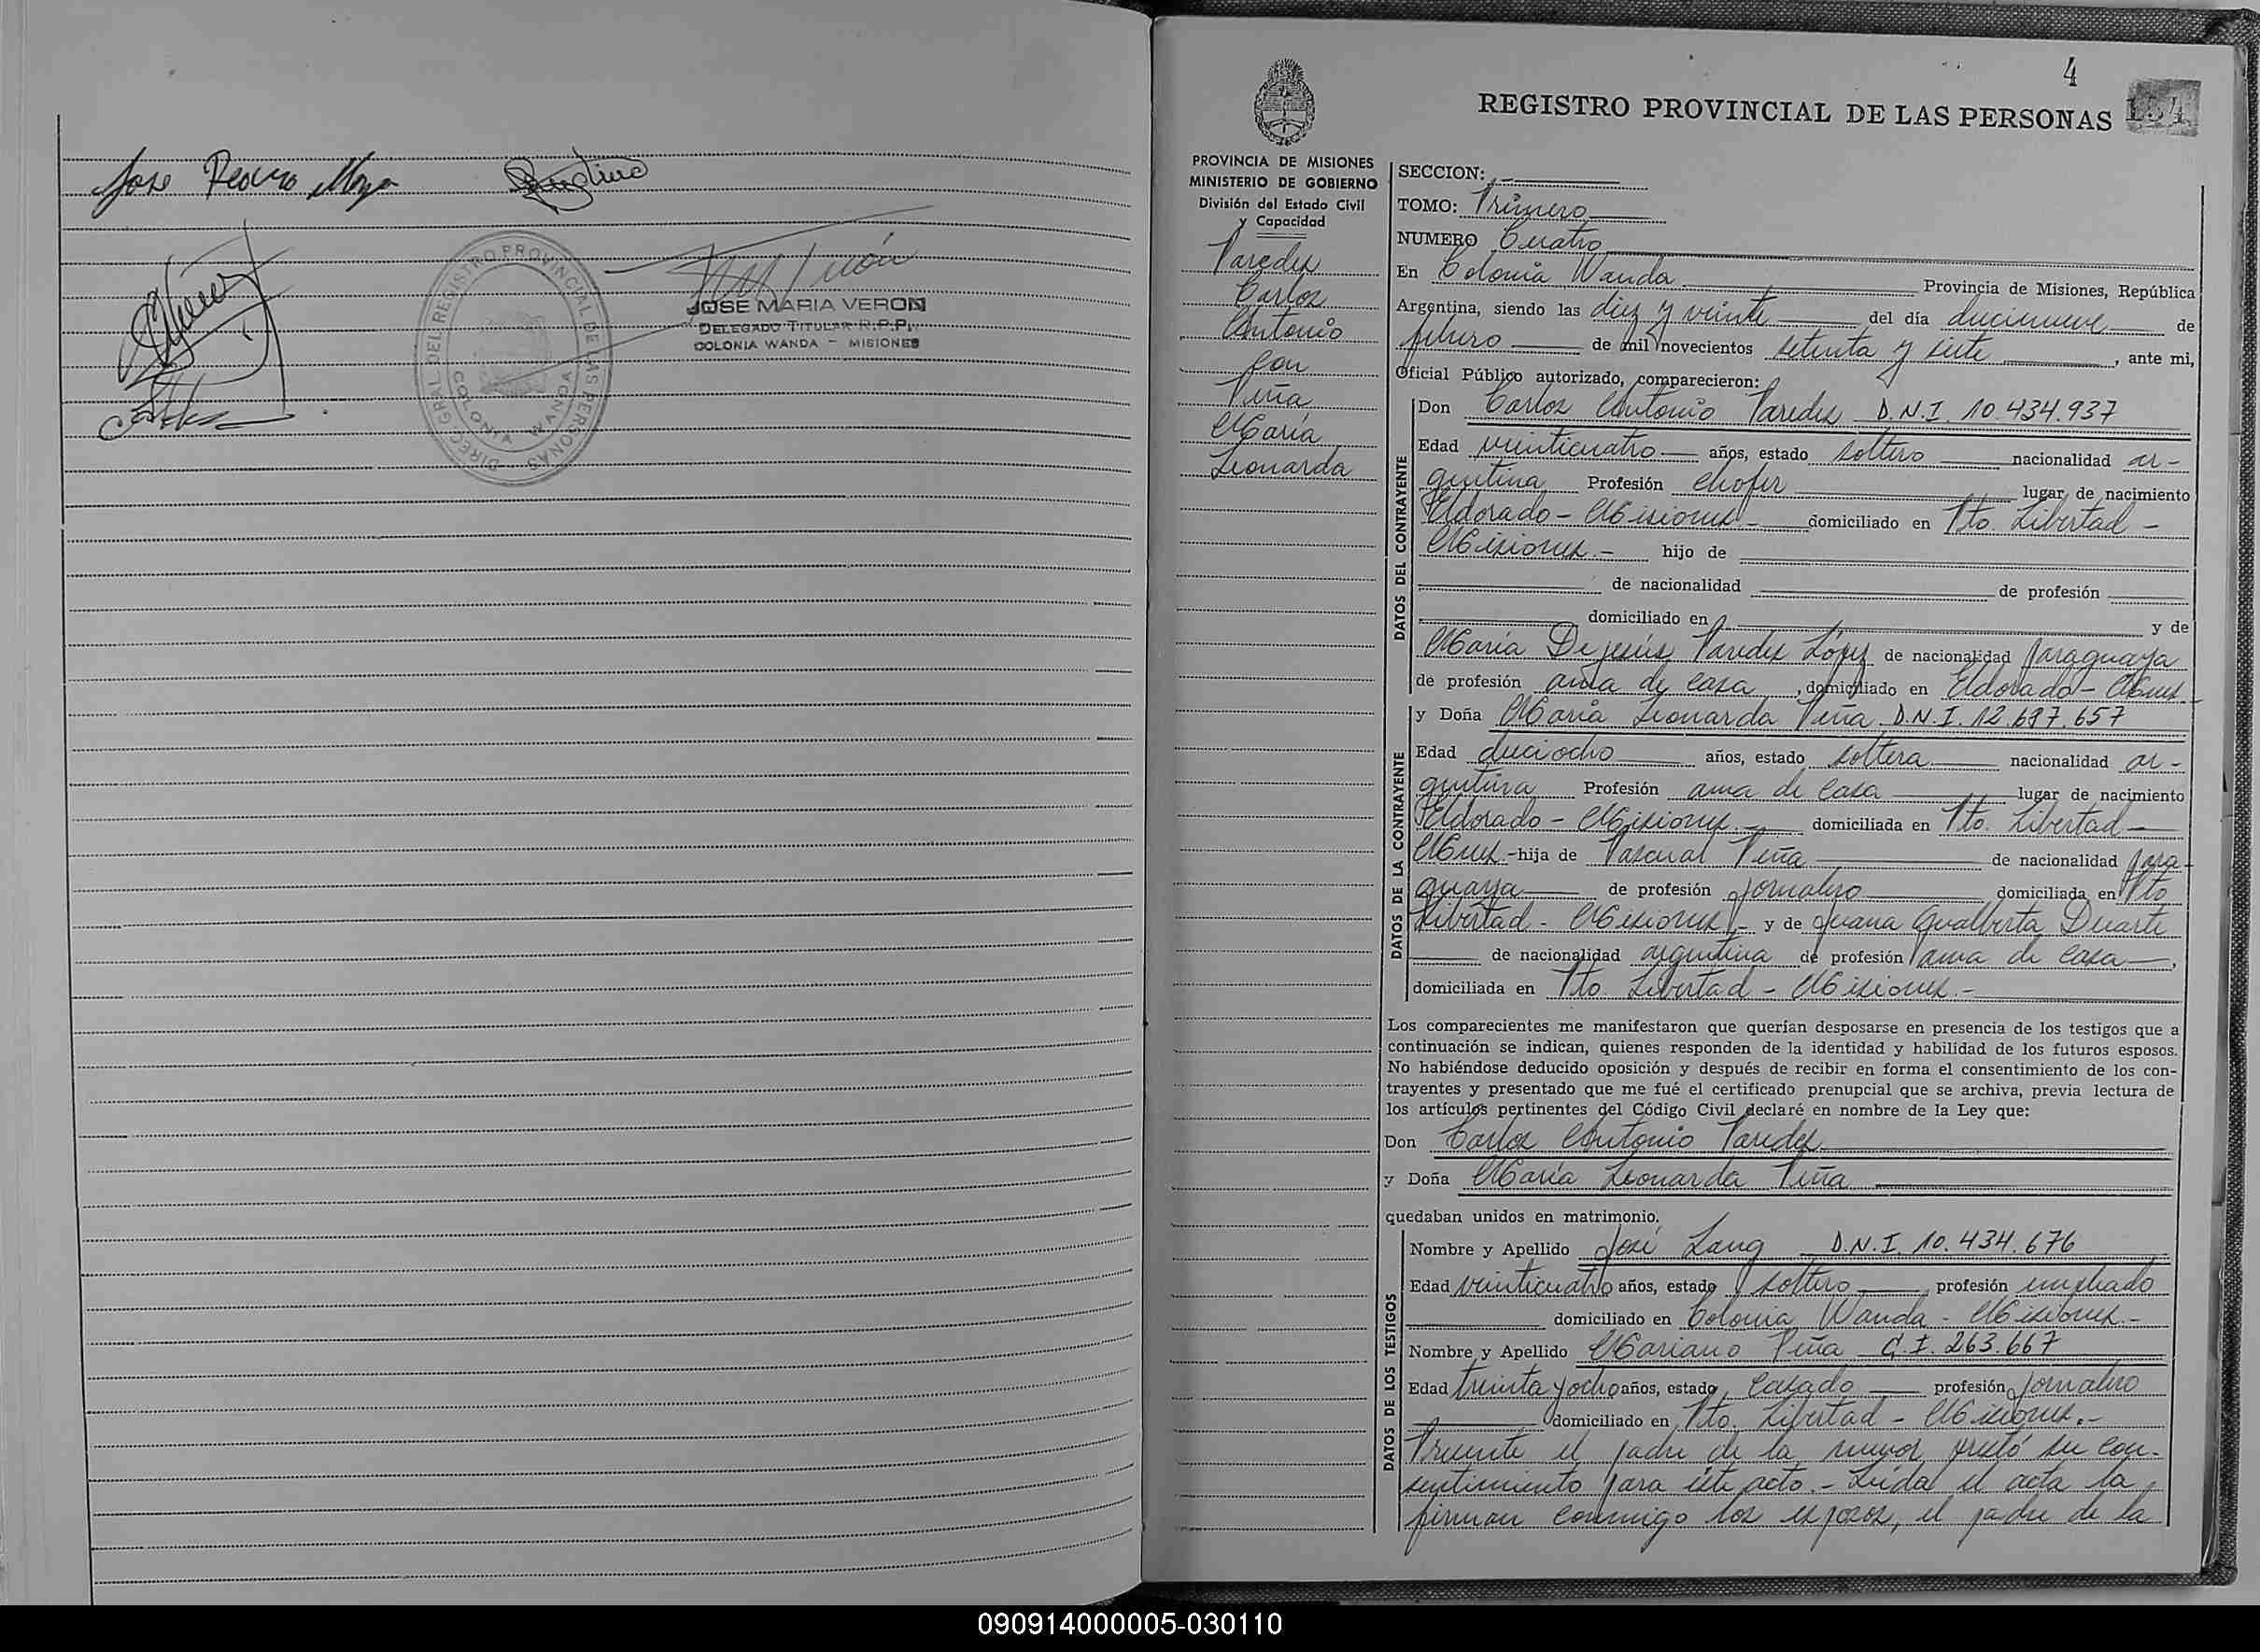 Jose Pedro Moza
JOSE MARIA VERON
DELEGADO TITULAR R.P.P.
COLONIA WANDA - MISIONES
DIREC. GRAL. DEL REGISTRO PROVINCIAL DE LAS PERSONAS
COLONIA WANDA
4
REGISTRO PROVINCIAL DE LAS PERSONAS
PROVINCIA DE MISIONES
MINISTERIO DE GOBIERNO
División del Estado Civil
y Capacidad
Paredes
Carlos
Antonio
con
Piña
María
Leonarda
SECCION: -
TOMO: Primero
NUMERO Cuatro
En Colonia Wanda Provincia de Misiones, República
Argentina, siendo las diez y veinte del día diecinueve de
febrero de mil novecientos setenta y siete, ante mi,
Oficial Público autorizado, comparecieron:
DATOS DEL CONTRAYENTE
Don Carlos Antonio Paredes D.N.I. 10.434.937
Edad veinticuatro años, estado soltero nacionalidad ar-
gentina Profesión chofer lugar de nacimiento
Eldorado - Misiones - domiciliado en Pto. Libertad -
Misiones.- hijo de
de nacionalidad de profesión
domiciliado en y de
María De jesús Paredes López de nacionalidad paraguaya
de profesión ama de casa, domiciliado en Eldorado - Mnes
DATOS DE LA CONTRAYENTE
y Doña María Leonarda Piña D.N.I. 12.637.657
Edad dieciocho años, estado soltera nacionalidad ar-
gentina Profesión ama de casa lugar de nacimiento
Eldorado - Misiones.- domiciliada en Pto. Libertad -
Mnes.- hija de Pascual Piña de nacionalidad para-
guaya de profesión jornalero domiciliada en Pto
Libertad - Misiones - y de Juana Gualberta Duarte
de nacionalidad argentina de profesión ama de casa,
domiciliada en Pto. Libertad - Misiones.-
Los comparecientes me manifestaron que querían desposarse en presencia de los testigos que a
continuación se indican, quienes responden de la identidad y habilidad de los futuros esposos.
No habiéndose deducido oposición y después de recibir en forma el consentimiento de los con-
trayentes y presentado que me fué el certificado prenupcial que se archiva, previa lectura de
los artículos pertinentes del Código Civil declaré en nombre de la Ley que:
Don Carlos Antonio Paredes
y Doña María Leonarda Piña
quedaban unidos en matrimonio.
DATOS DE LOS TESTIGOS
Nombre y Apellido José Lang D.N.I. 10.434.676
Edad veinticuatro años, estado soltero profesión empleado
domiciliado en Colonia Wanda - Misiones.-
Nombre y Apellido Mariano Piña C.I. 263.667
Edad treinta y ocho años, estado casado profesión jornalero
domiciliado en Pto. Libertad - Misiones.-
Presente el padre de la menor prestó su con-
sentimiento para éste acto.- Leída el acta la
firman conmigo los esposos, el padre de la
090914000005-030110